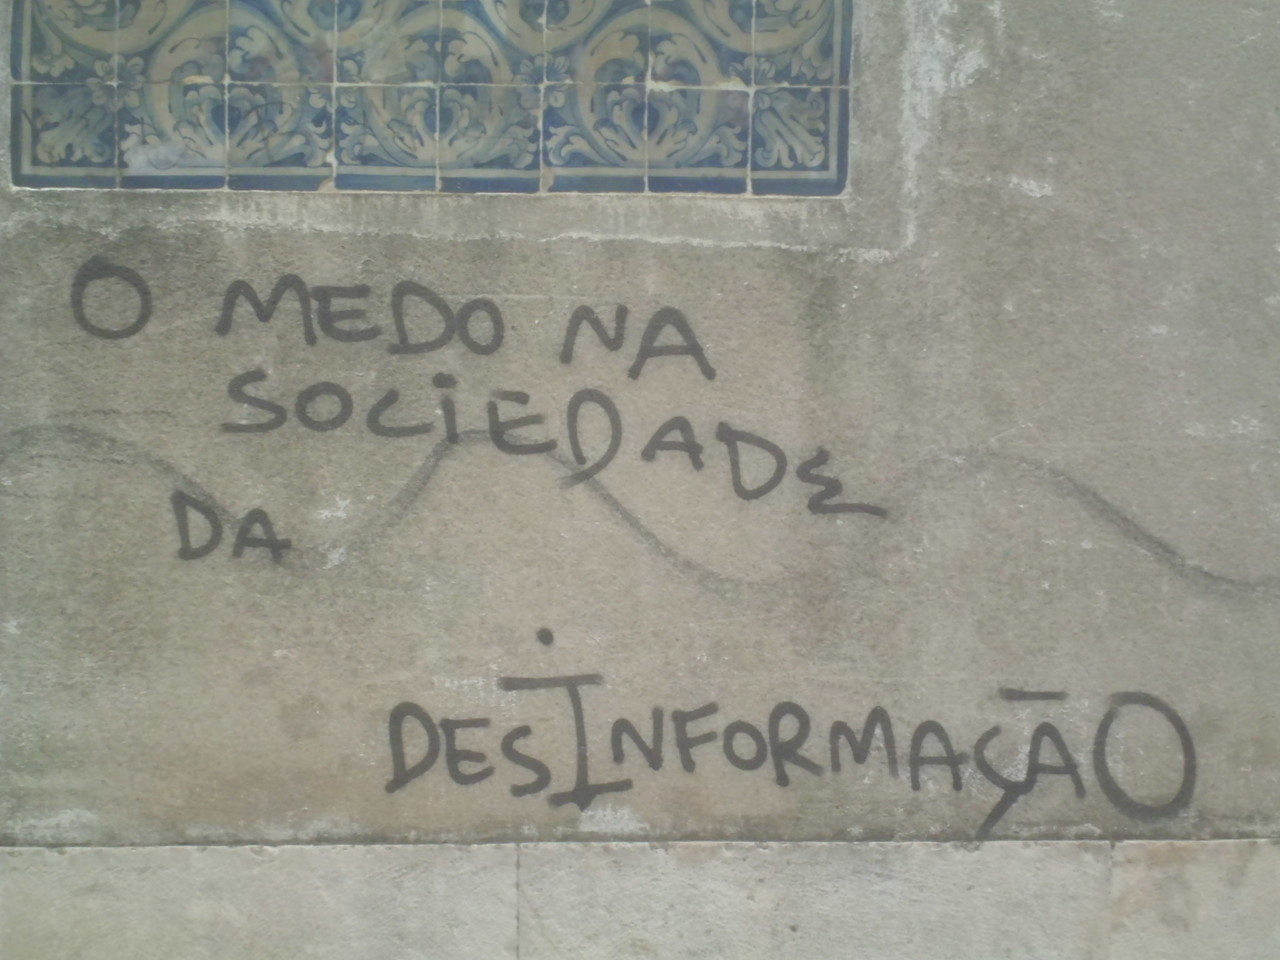 O MEDO NA
SOCIEDADE
DA
DESINFORMAÇÃO